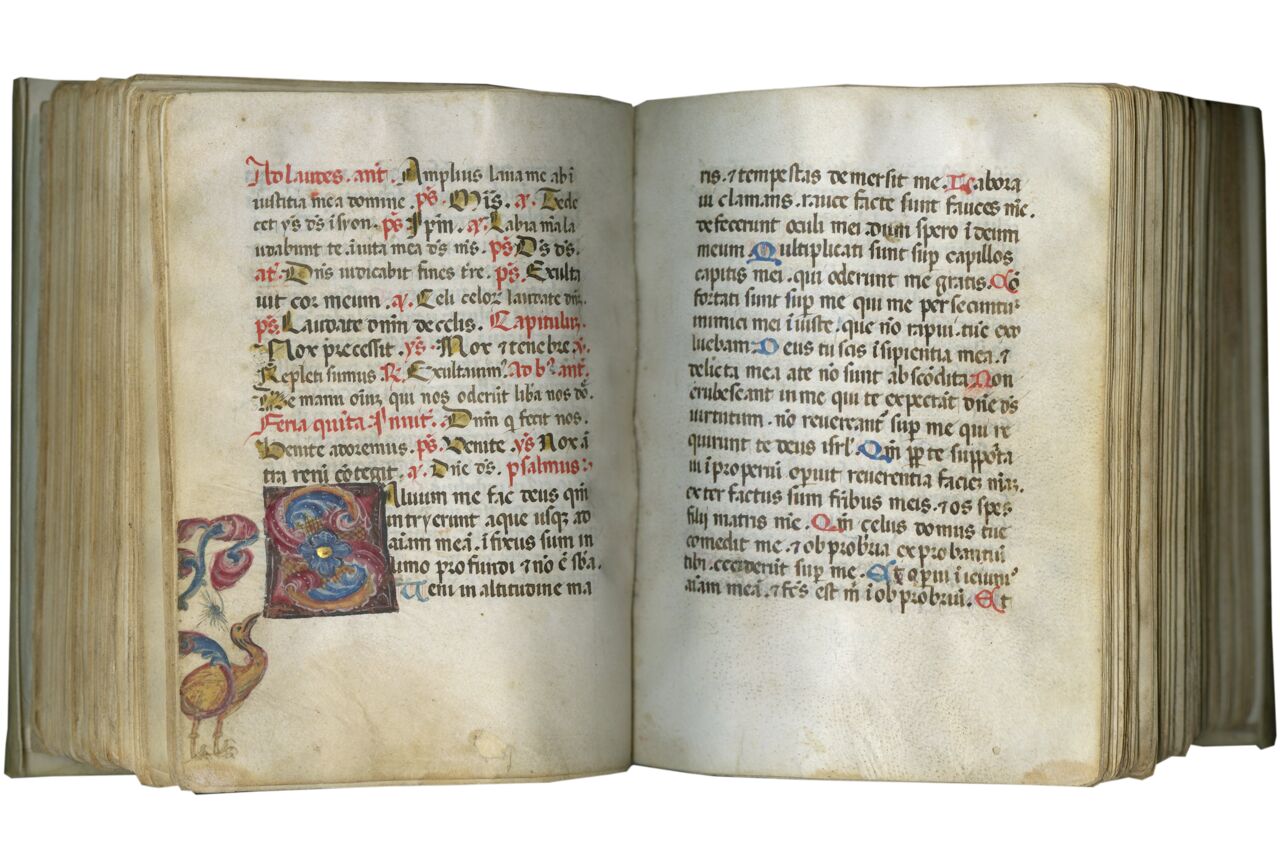 Ad laudes. ant̃. Amplius lava me ab ĩ
iustitia mea domine. ps̃. Mis̃. a̅. Dede
cet ys d̃s ĩ syon. ps̃ Ip̃m. a̅. Labia m̃a la
udabunt te. ĩ uita mea d̃s m̃s. ps̃ D̃s d̃s.
at̃. Dñs iudicabit fines tr̃e. ps̃. Exulta
uit cor meum. a̅. Celi celoꝝ laudate dm̃.
ps̃. Laudate dnm̃ de celis. Capituluz.
Nox precessit. ys̃. Nox ⁊ tenebre. y̅.
Repleti sumus R. Exultauim⁹. Ad b̃. ant̃.
De manu oĩuz qui nos oderũt liba nos do̅.
Feria quĩta. Ĩnuit̃. Dnm̃ q̃ fecit nos.
Venite adoremus. ps̃. Venite. ys̃ Nox ã
tra reru̅ co̅tegit. a̅. Dñe d̃s. psalmus:
Aluum me fac deus qm̃
intrauerunt aque usqꝫ ad
aĩam mea̅. ĩfixus sum in
limo profundi ⁊ no̅ e̅ sb̃a.
Veni in altitudine ma
ris. ⁊ tempestas demersit me. Labora
ui clamans. rauce facte sunt fauces m̃e.
defecerunt oculi mei dum spero ĩ deum
meum Multiplicati sunt sup̃ capillos
capitis mei. qui oderunt me gratis. Co̅
fortati sunt sup̃ me qui me persecuntur
inimici mei ĩiuste. que no̅ rapui. tu̅c exo
luebam. Deus tu scis ĩsipientia mea. ⁊
delicta mea a te no̅ sunt abscõdita Non
erubescant in me qui te expecta̅t dñe d̃s
uirtutum. no̅ reuerea̅nt sup̃ me qui re
quirunt te deus isrl̃. Qm̃ pp̃ te suppõrta
ui ĩproperiu̅ op̃uit reuerentia faciez m̃az.
exter factus sum fr̃ibus meis. ⁊ os spes
filii matris m̃e. Qm̃ çelus domus tue
comedit me. ⁊ obprobria exprobantiu̅
tibi. ceciderũt sup̃ me. Et op̃ui ĩ ieiuni⁰
aĩam mea̅. ⁊ fc̃s est m̃ ĩ obprobriu̅. Et